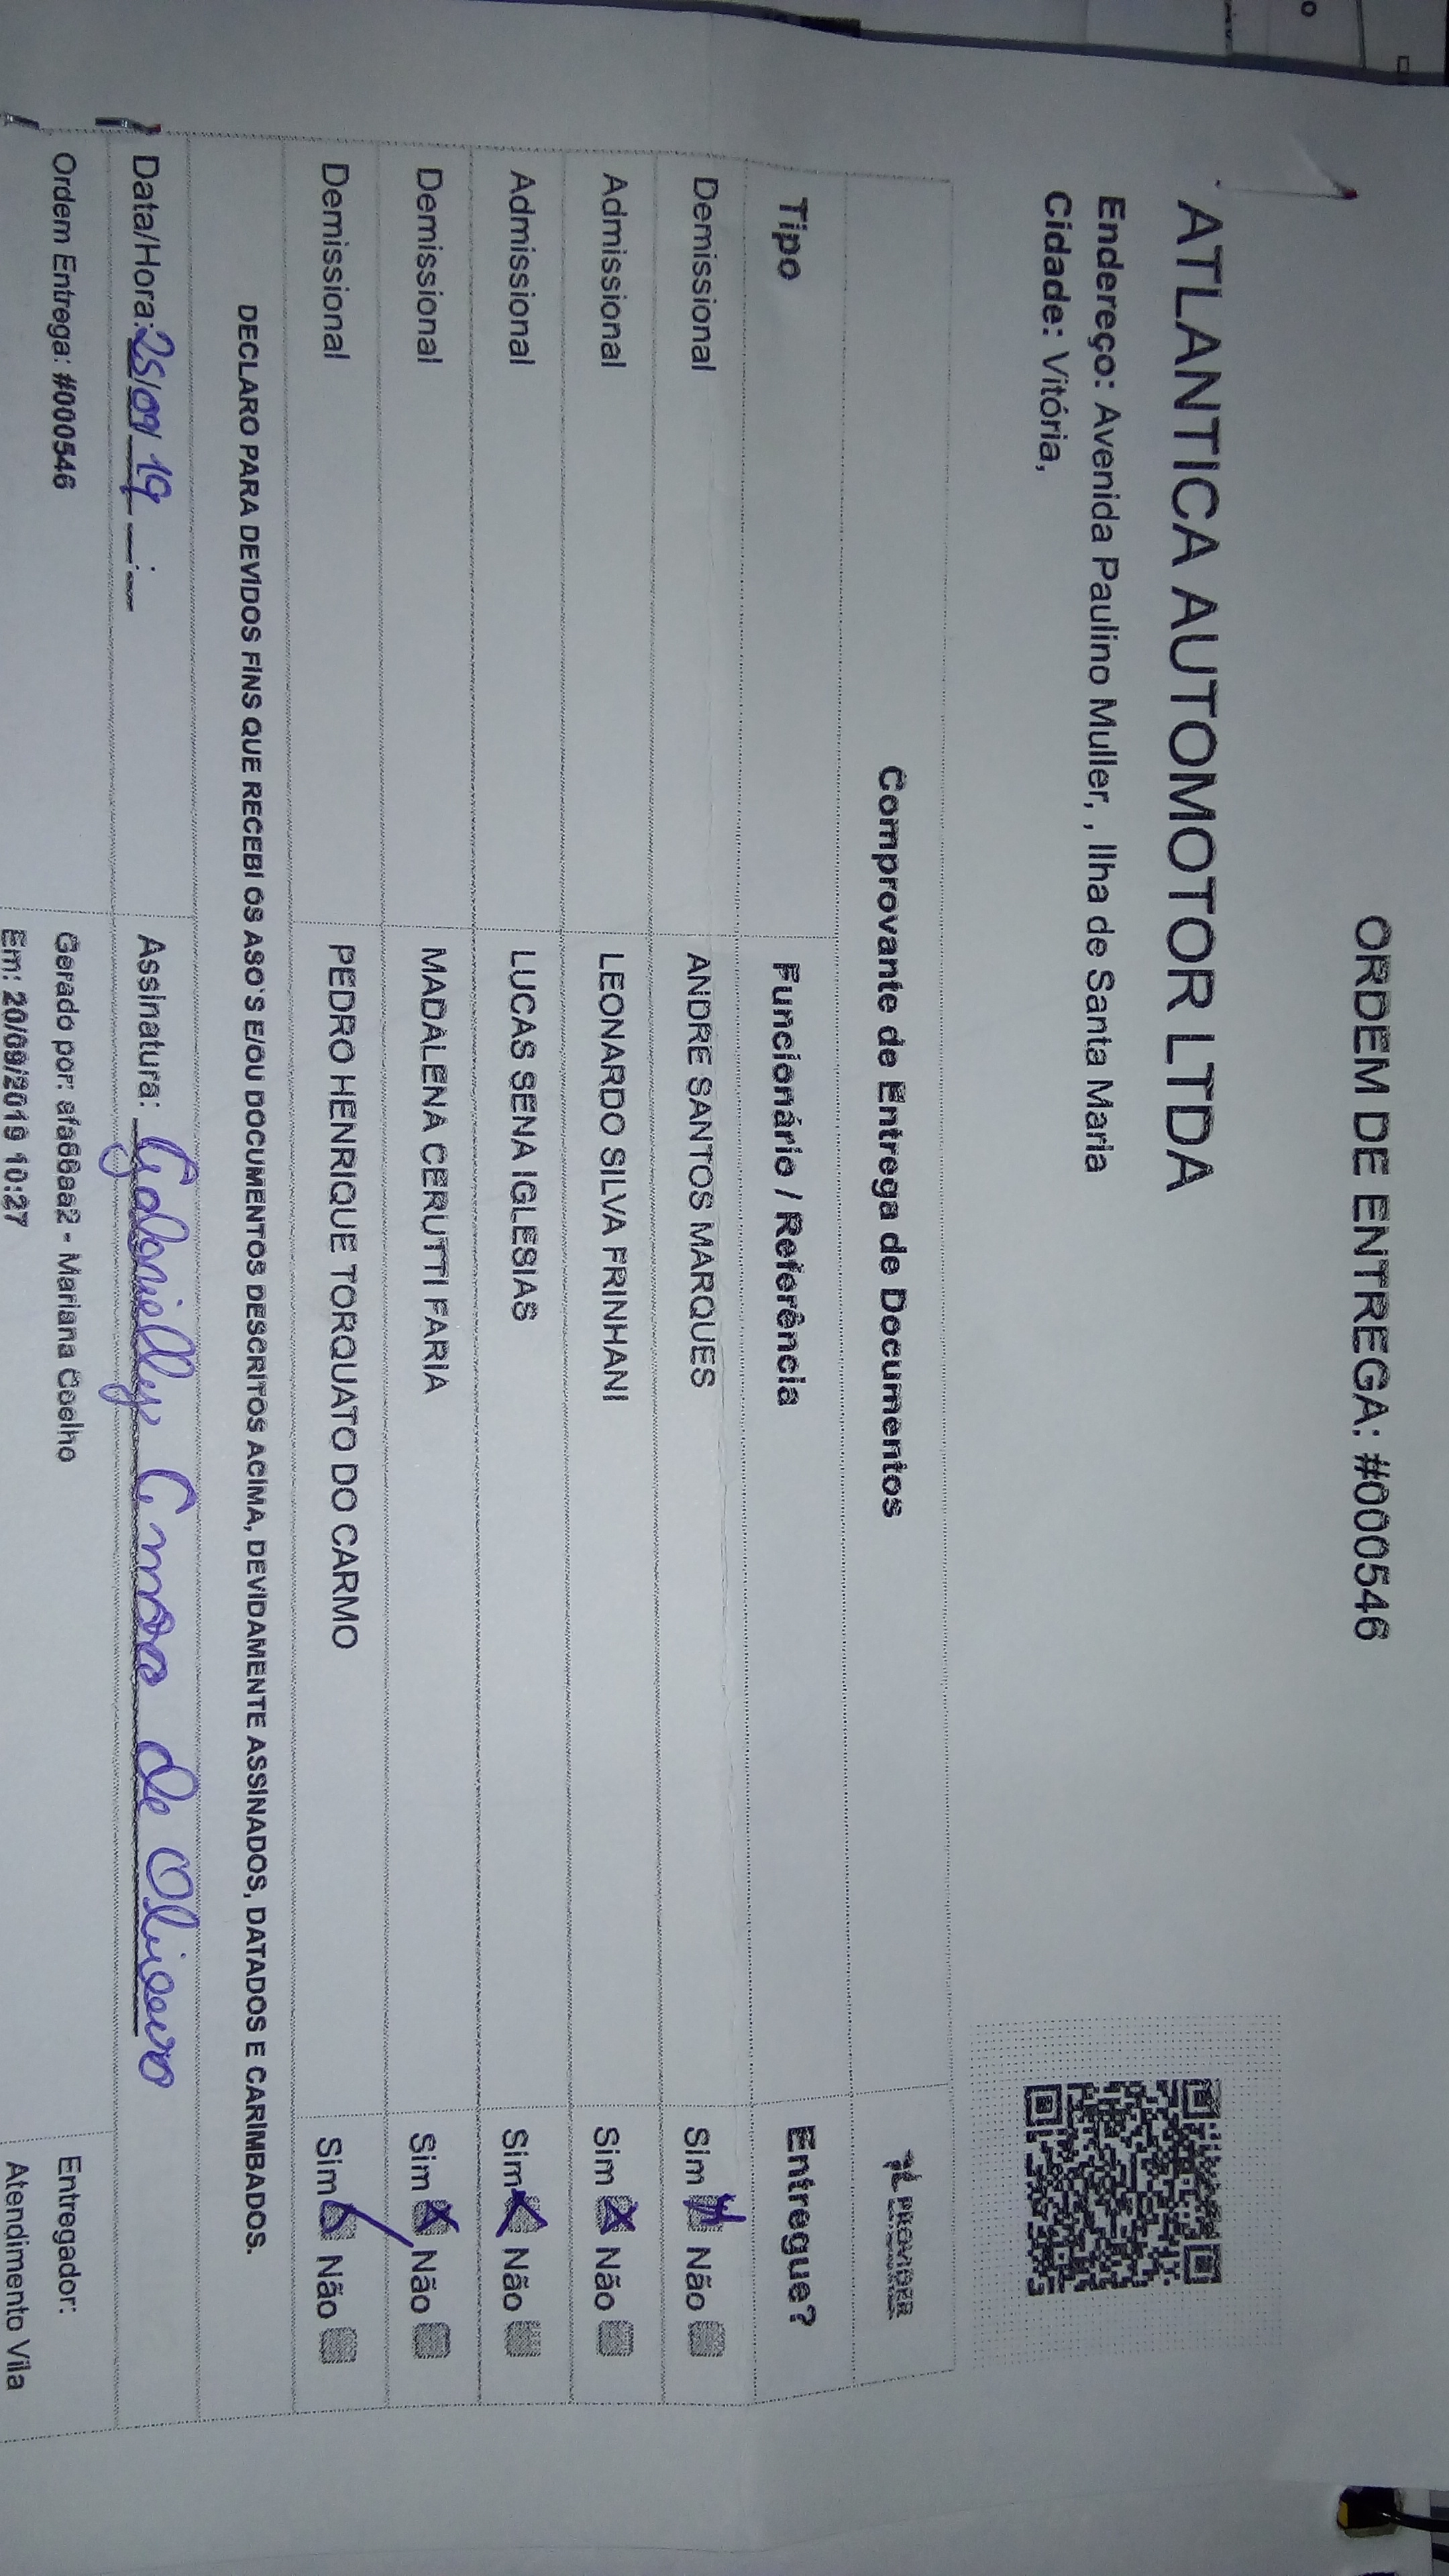 ORDEM DE ENTREGA: #000546
ATLANTICA AUTOMOTOR LTDA
Endereço: Avenida Paulino Muller, , Ilha de Santa Maria
Cidade: Vitória,
Comprovante de Entrega de Documentos PROVIDER
Tipo Funcionário / Referência Entregue?
Demissional ANDRE SANTOS MARQUES Sim Não
Admissional LEONARDO SILVA FRINHANI Sim Não
Admissional LUCAS SENA IGLESIAS Sim Não
Demissional MADALENA CERUTTI FARIA Sim Não
Demissional PEDRO HENRIQUE TORQUATO DO CARMO Sim Não
DECLARO PARA DEVIDOS FINS QUE RECEBI OS ASO'S E/OU DOCUMENTOS DESCRITOS ACIMA, DEVIDAMENTE ASSINADOS, DATADOS E CARIMBADOS.
Data/Hora: 25/09/19 __:__ Assinatura: Gabrielly de Oliveira
Ordem Entrega: #000546 Gerado por: afa66aa2 - Mariana Coelho Entregador:
Em: 20/09/2019 10:27 Atendimento Vila